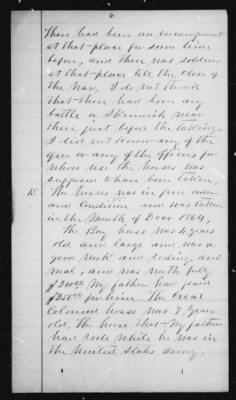 4
There had been an encampment
at that place for some time
before, and there was soldiers
at that place till the close of
the War, I do not think
that there had been any
battle or Skirmish near
there just before the taking.
I did not know any of the
gen or any of the officers for
whose use the horses was
supposed to have been taken.
15 The horses was in fine order
and Condition and was taken
in the Month of Decr 1864,
The Bay horse was 6 years
old and large and was a
good work and riding ani
mal, and was worth fully
$200.00 My father had paid
$250.00 for him The Creal
Coloured horse was 8 Years
old, the horse that My father
had rode while he was in
the United States Army.